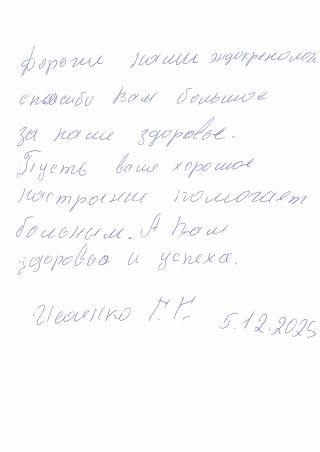 Дорогии наши эндокренологи
спасибо Вам большое
за наше здоровье.
Пусть ваше хорошое
настроение помогает
больным. А Вам
здоровья и успеха.
Г.Г. 5.12.2025